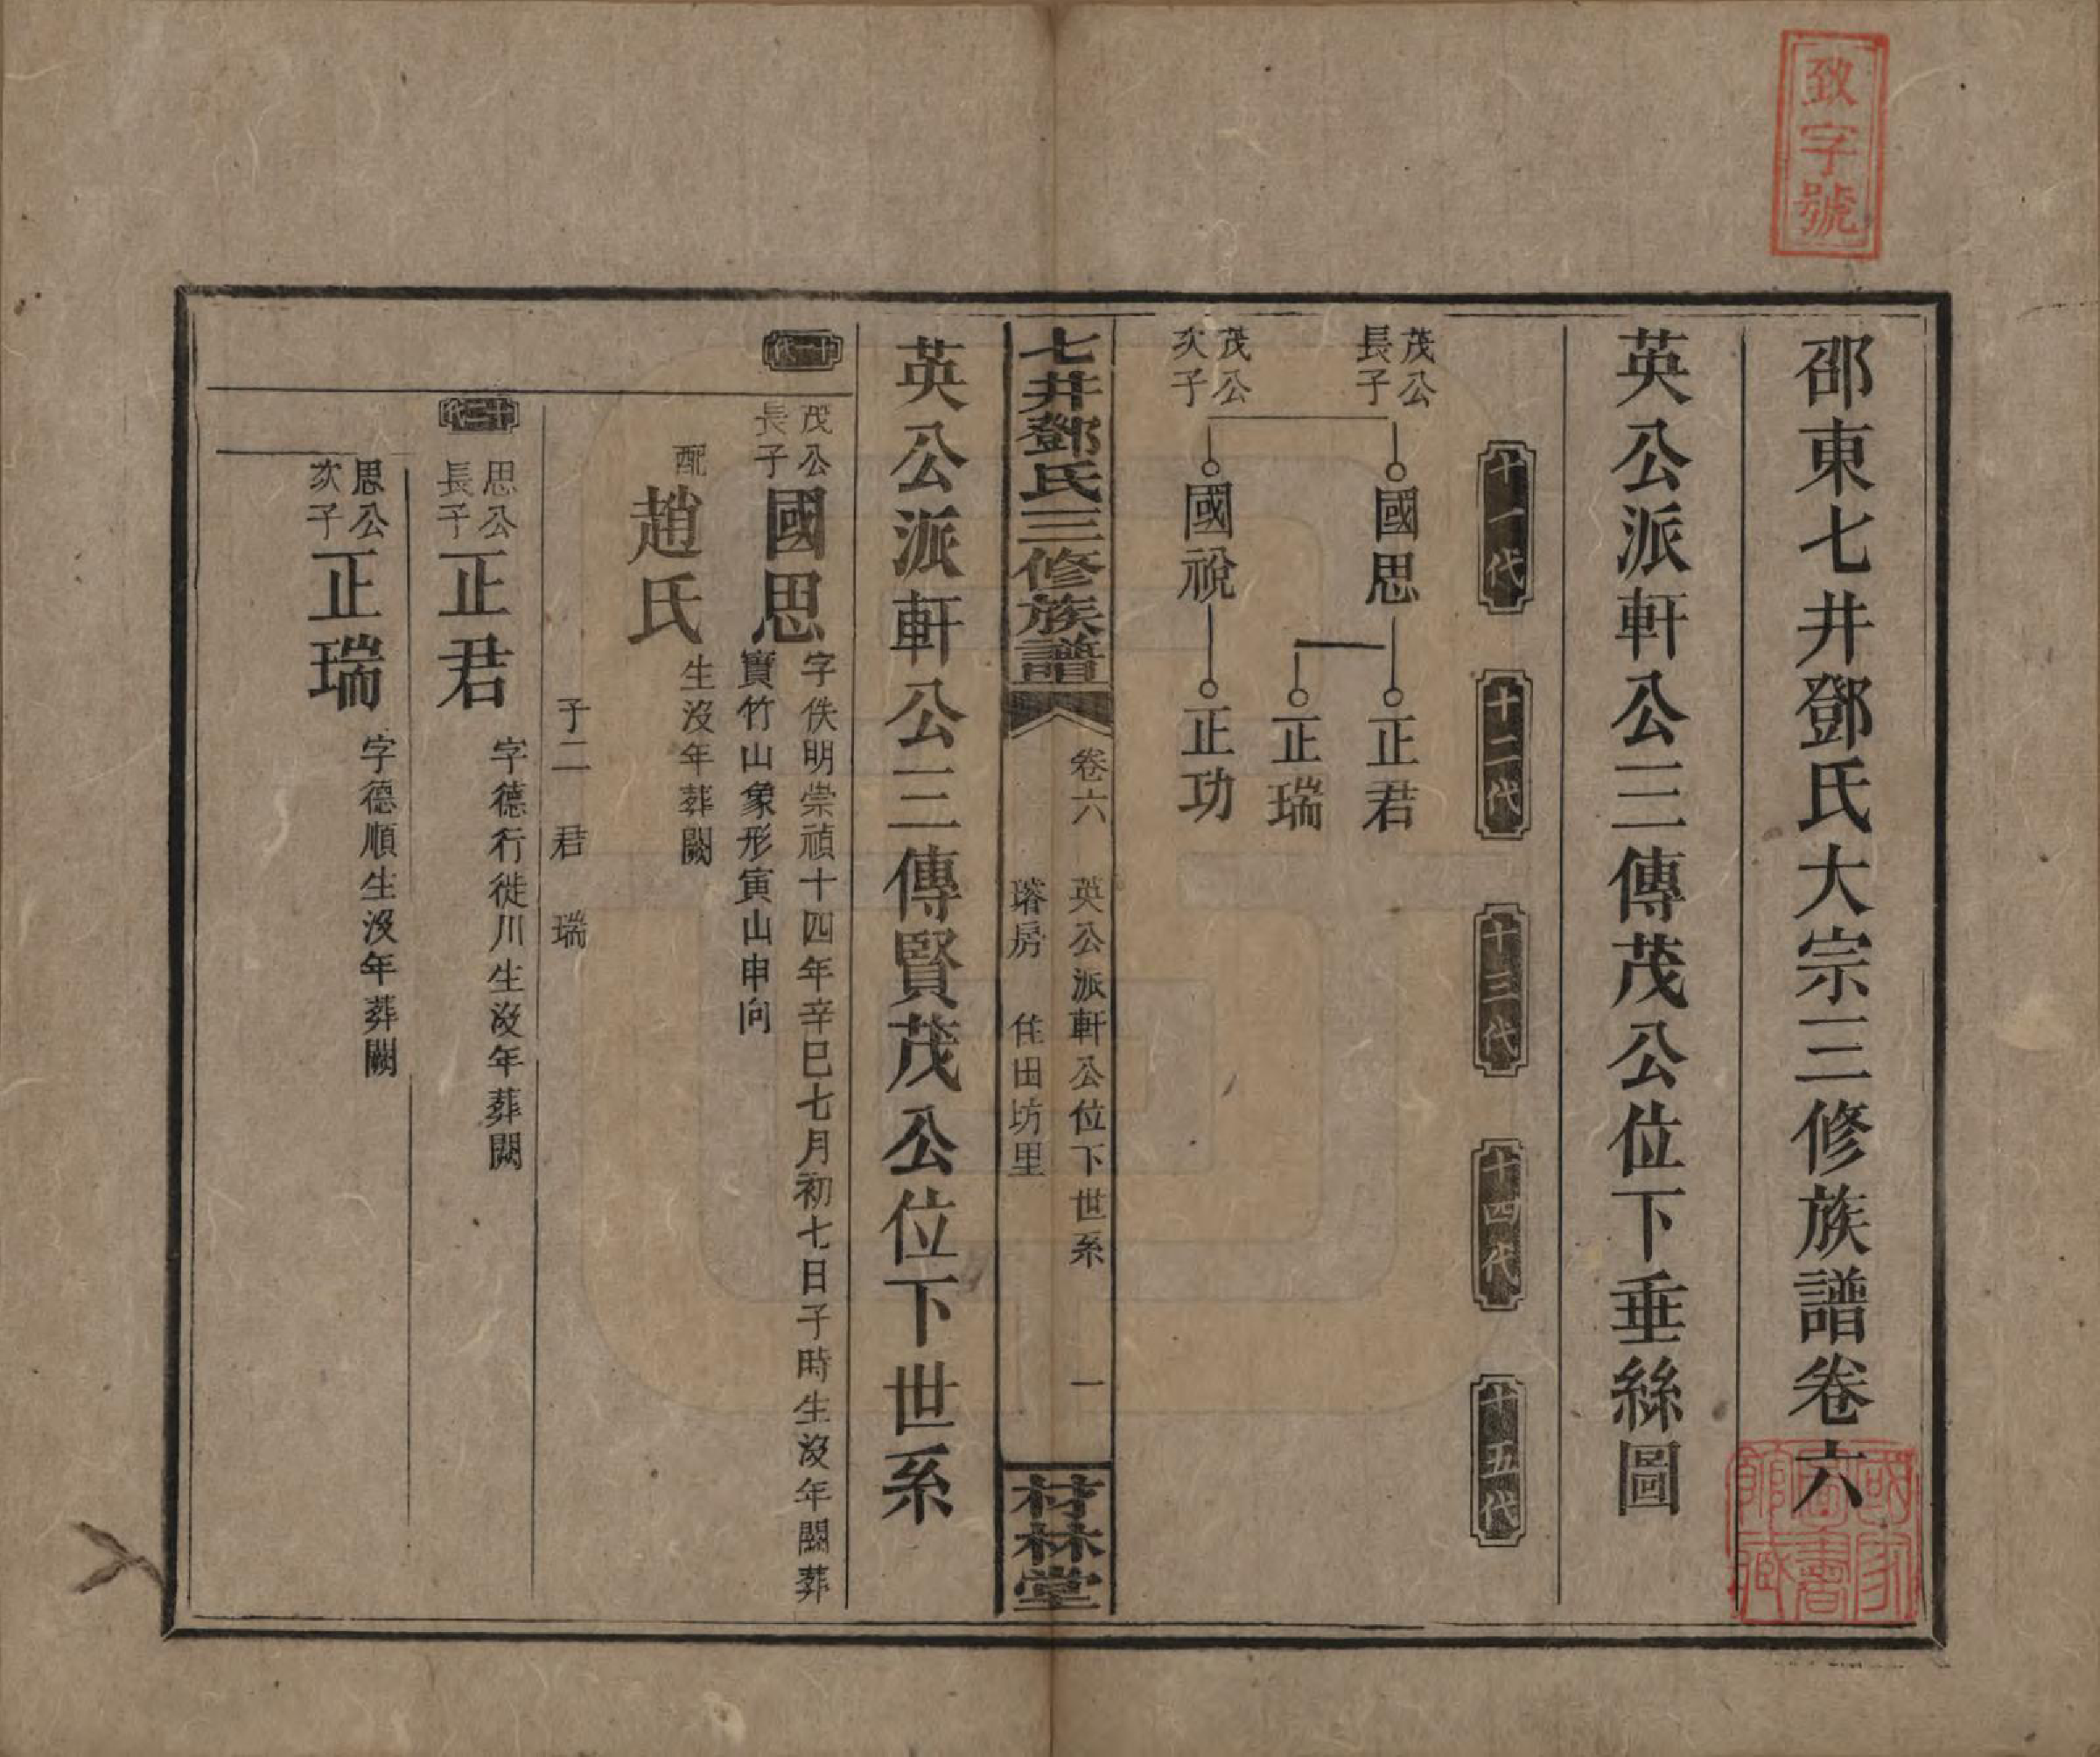 致字號
邵東七井鄧氏大宗三修族譜卷六
國家圖書館藏
英公派軒公三傳茂公位下垂絲圖
十一代
十二代
十三代
十四代
十五代
茂公長子
國思
正君
正瑞
茂公次子
國祱
正功
七井鄧氏三修族譜
卷六 英公派軒公位下世系 一
璿房 住田坊里
材林堂
英公派軒公三傳賢茂公位下世系
十一代
茂公長子
國思
字佚明崇禎十四年辛巳七月初七日子時生沒年闕葬
寶竹山象形寅山申向
配趙氏
生沒年葬闕
子二 君 瑞
十二代
思公長子
正君
字德行徙川生沒年葬闕
思公次子
正瑞
字德順生沒年葬闕